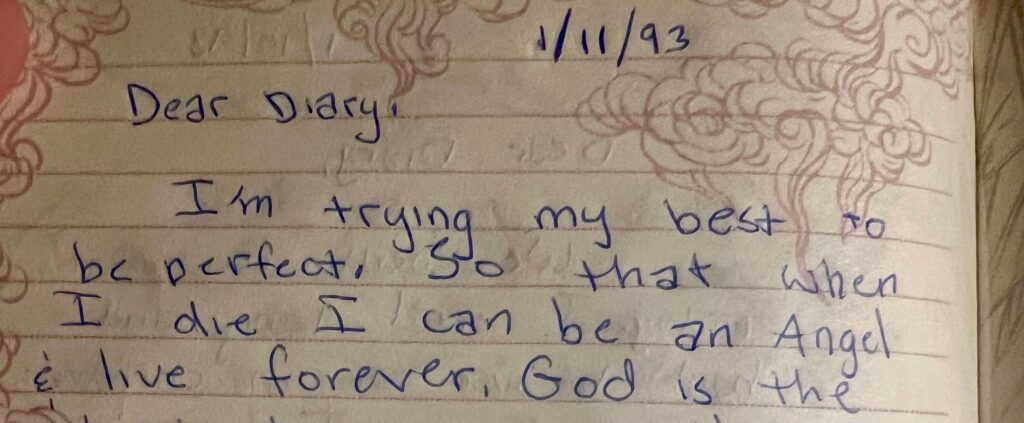 1/11/93
Dear Diary,
I'm trying my best to
be perfect. So that when
I die I can be an Angel
& live forever. God is the